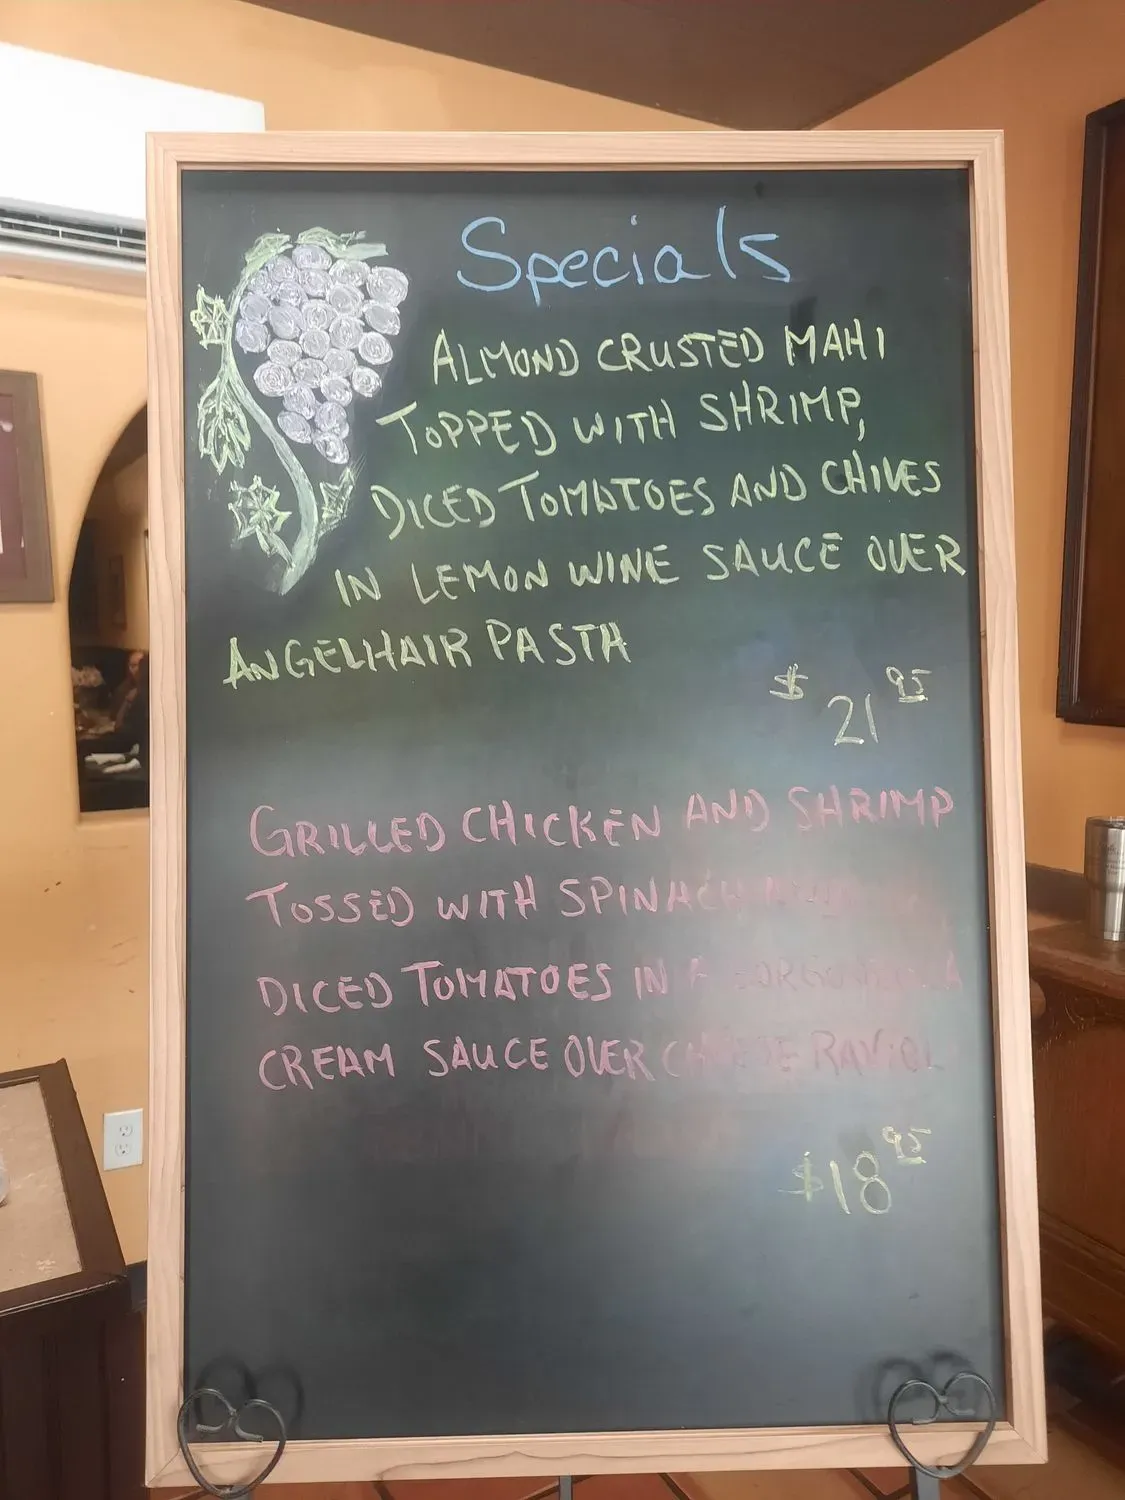 Specials
ALMOND CRUSTED MAHI
TOPPED WITH SHRIMP,
DICED TOMATOES AND CHIVES
IN LEMON WINE SAUCE OVER
ANGELHAIR PASTA
$21 95
GRILLED CHICKEN AND SHRIMP
TOSSED WITH SPINACH
DICED TOMATOES IN A GORGONZOLA
CREAM SAUCE OVER CHEESE RAVIOL
$18 95